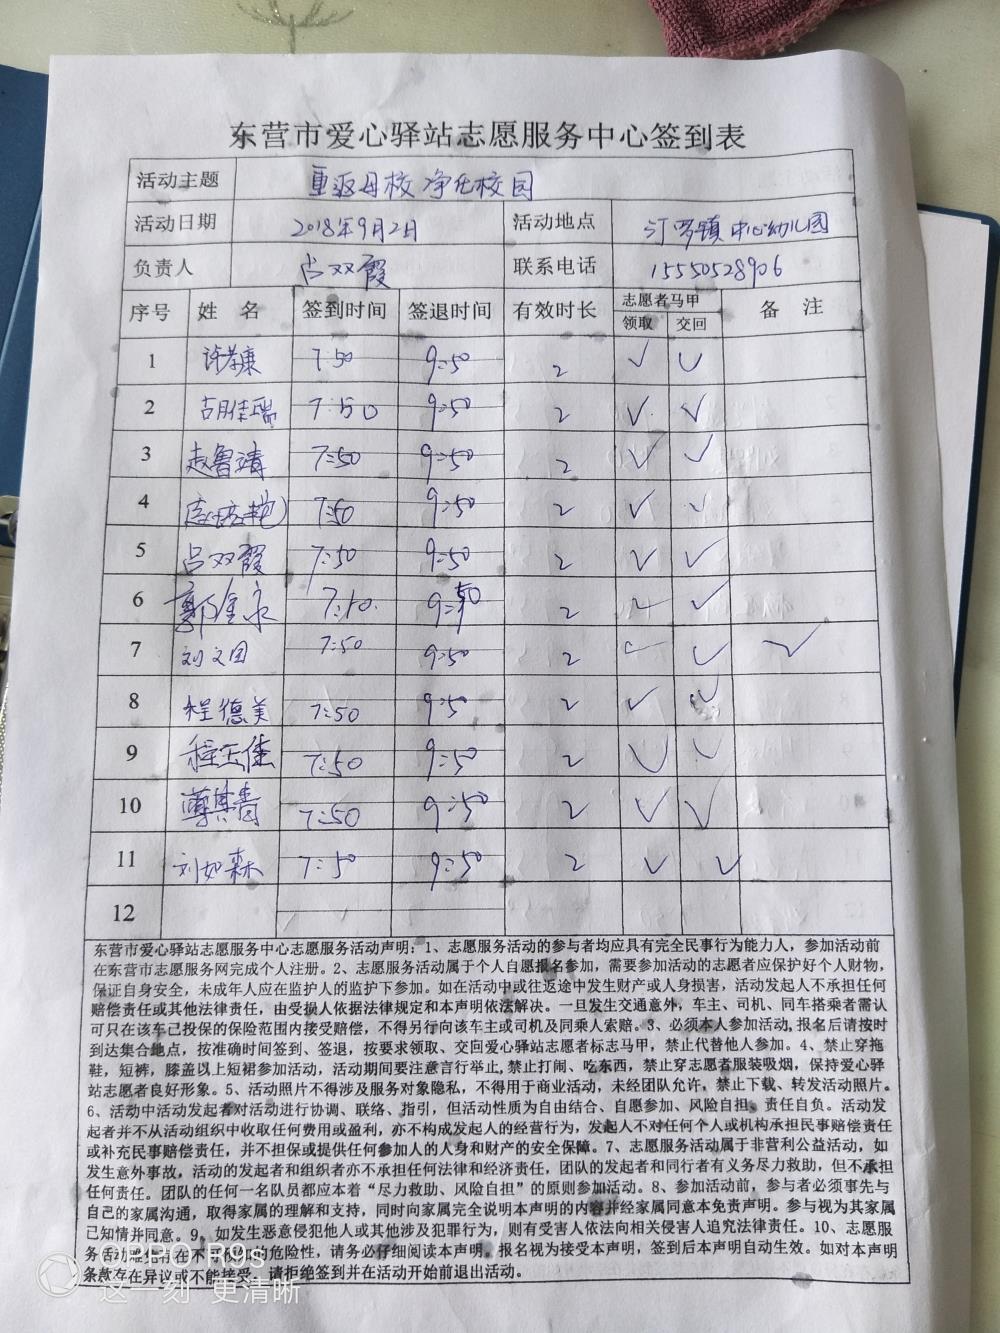 东营市爱心驿站志愿服务中心签到表
活动主题 重返母校 净化校园
活动日期 2018年9月2日 活动地点 汀罗镇中心幼儿园
负责人 吕双霞 联系电话 15550528906
序号 姓 名 签到时间 签退时间 有效时长 志愿者马甲 备 注
领取 交回
1 7:50 9:50 2 ✓ ✓
2 胡佳瑞 7:50 9:50 2 ✓ ✓
3 赵鲁靖 7:50 9:50 2 ✓ ✓
4 7:50 9:50 2 ✓ ✓
5 吕双霞 7:50 9:50 2 ✓ ✓
6 郭金永 7:50 9:50 2 ✓ ✓
7 刘文国 7:50 9:50 2 ✓ ✓ ✓
8 程德美 7:50 9:50 2 ✓ ✓
9 程玉佳 7:50 9:50 2 ✓ ✓
10 7:50 9:50 2 ✓ ✓
11 刘如森 7:50 9:50 2 ✓ ✓
12
东营市爱心驿站志愿服务中心志愿服务活动声明：1、志愿服务活动的参与者均应具有完全民事行为能力人，参加活动前
在东营市志愿服务网完成个人注册。2、志愿服务活动属于个人自愿报名参加，需要参加活动的志愿者应保护好个人财物，
保证自身安全，未成年人应在监护人的监护下参加。如在活动中或往返途中发生财产或人身损害，活动发起人不承担任何
赔偿责任或其他法律责任，由受损人依据法律规定和本声明依法解决。一旦发生交通意外，车主、司机、同车搭乘者需认
可只在该车已投保的保险范围内接受赔偿，不得另行向该车主或司机及同乘人索赔。3、必须本人参加活动,报名后请按时
到达集合地点，按准确时间签到、签退，按要求领取、交回爱心驿站志愿者标志马甲，禁止代替他人参加。4、禁止穿拖
鞋，短裤，膝盖以上短裙参加活动，活动期间要注意言行举止,禁止打闹、吃东西，禁止穿志愿者服装吸烟，保持爱心驿
站志愿者良好形象。5、活动照片不得涉及服务对象隐私，不得用于商业活动，未经团队允许，禁止下载、转发活动照片。
6、活动中活动发起者对活动进行协调、联络、指引，但活动性质为自由结合、自愿参加、风险自担、责任自负。活动发
起者并不从活动组织中收取任何费用或盈利，亦不构成发起人的经营行为，发起人不对任何个人或机构承担民事赔偿责任
或补充民事赔偿责任，并不担保或提供任何参加人的人身和财产的安全保障。7、志愿服务活动属于非营利公益活动，如
发生意外事故，活动的发起者和组织者亦不承担任何法律和经济责任，团队的发起者和同行者有义务尽力救助，但不承担
任何责任。团队的任何一名队员都应本着“尽力救助、风险自担”的原则参加活动。8、参加活动前，参与者必须事先与
自己的家属沟通，取得家属的理解和支持，同时向家属完全说明本声明的内容并经家属同意本免责声明。参与视为其家属
已知情并同意。9、如发生恶意侵犯他人或其他涉及犯罪行为，则有受害人依法向相关侵害人追究法律责任。10、志愿服
务活动难免有 不 的危险性，请务必仔细阅读本声明。报名视为接受本声明，签到后本声明自动生效。如对本声明
条款存在异议或不能接受，请拒绝签到并在活动开始前退出活动。
OPPO R9s
这一刻 更清晰